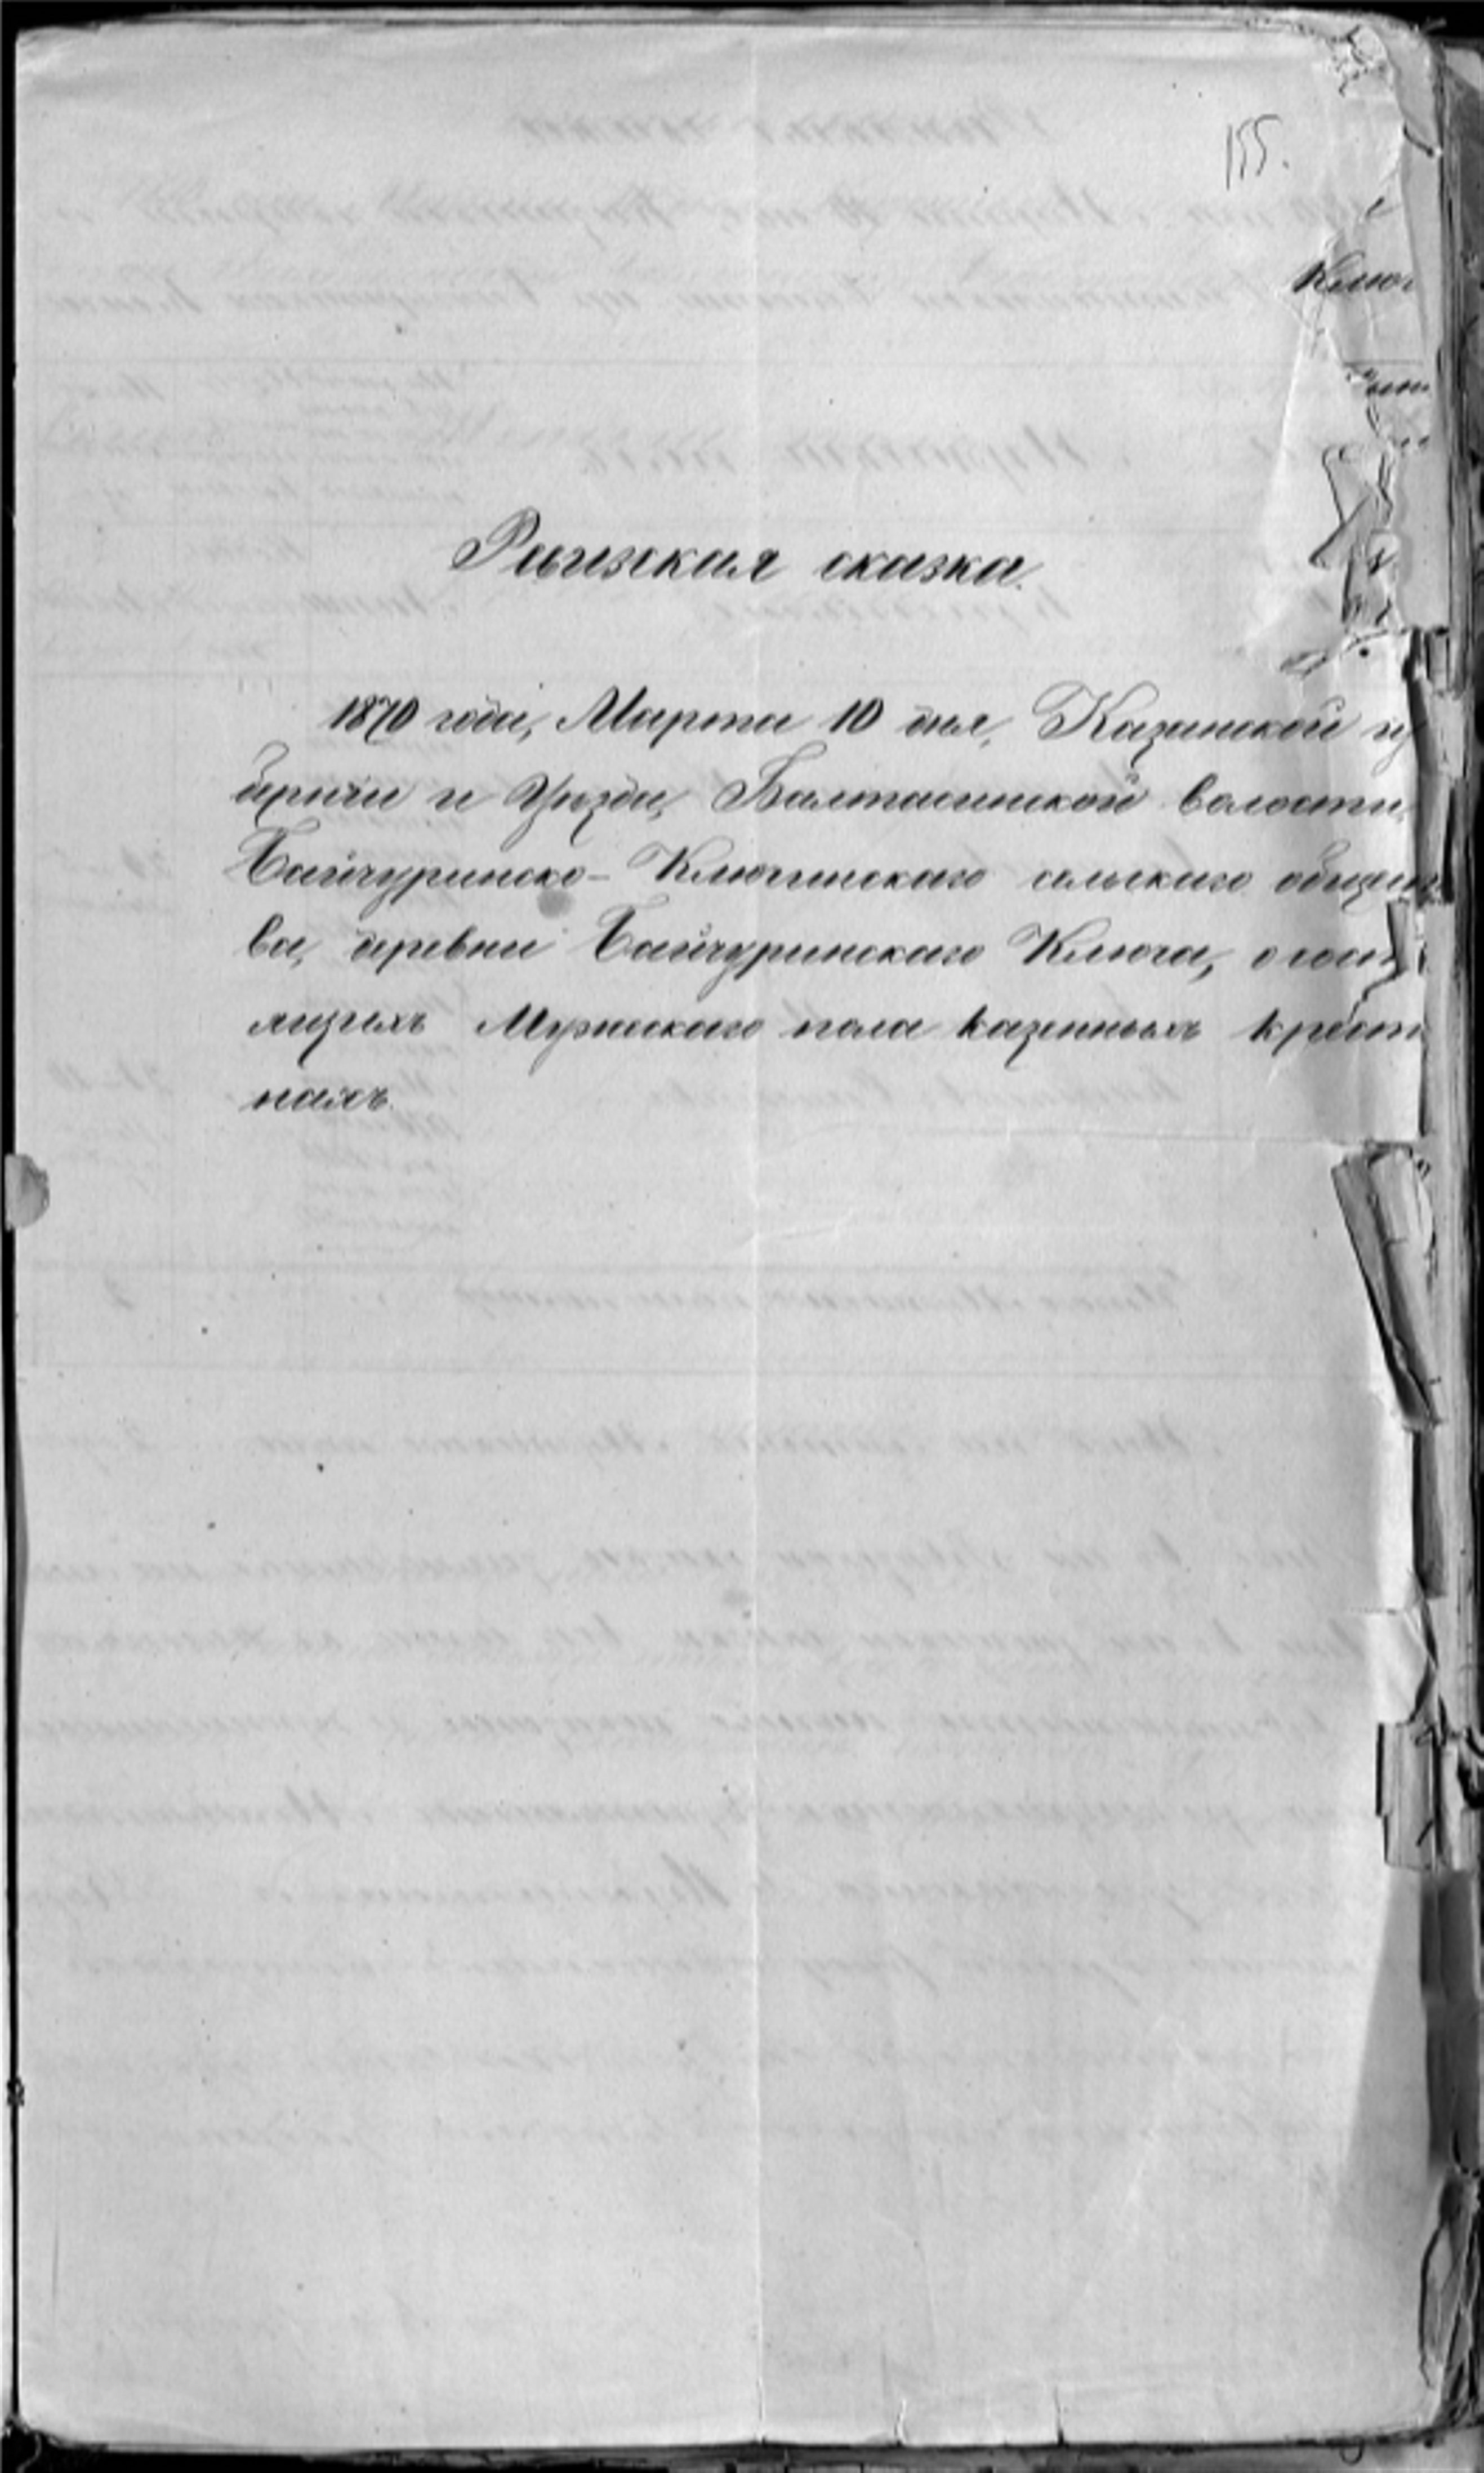 155.
Ключ
Ревизская сказка.
1870 года, Марта 10 дня, Казанской гу
берніи и Уѣзда, Балтасинской волости,
Байчуринско-Ключинскаго сельскаго общест
ва, деревни Байчуринскаго Ключа, о состо
ящихъ Мужескаго пола казенныхъ крест
нахъ.